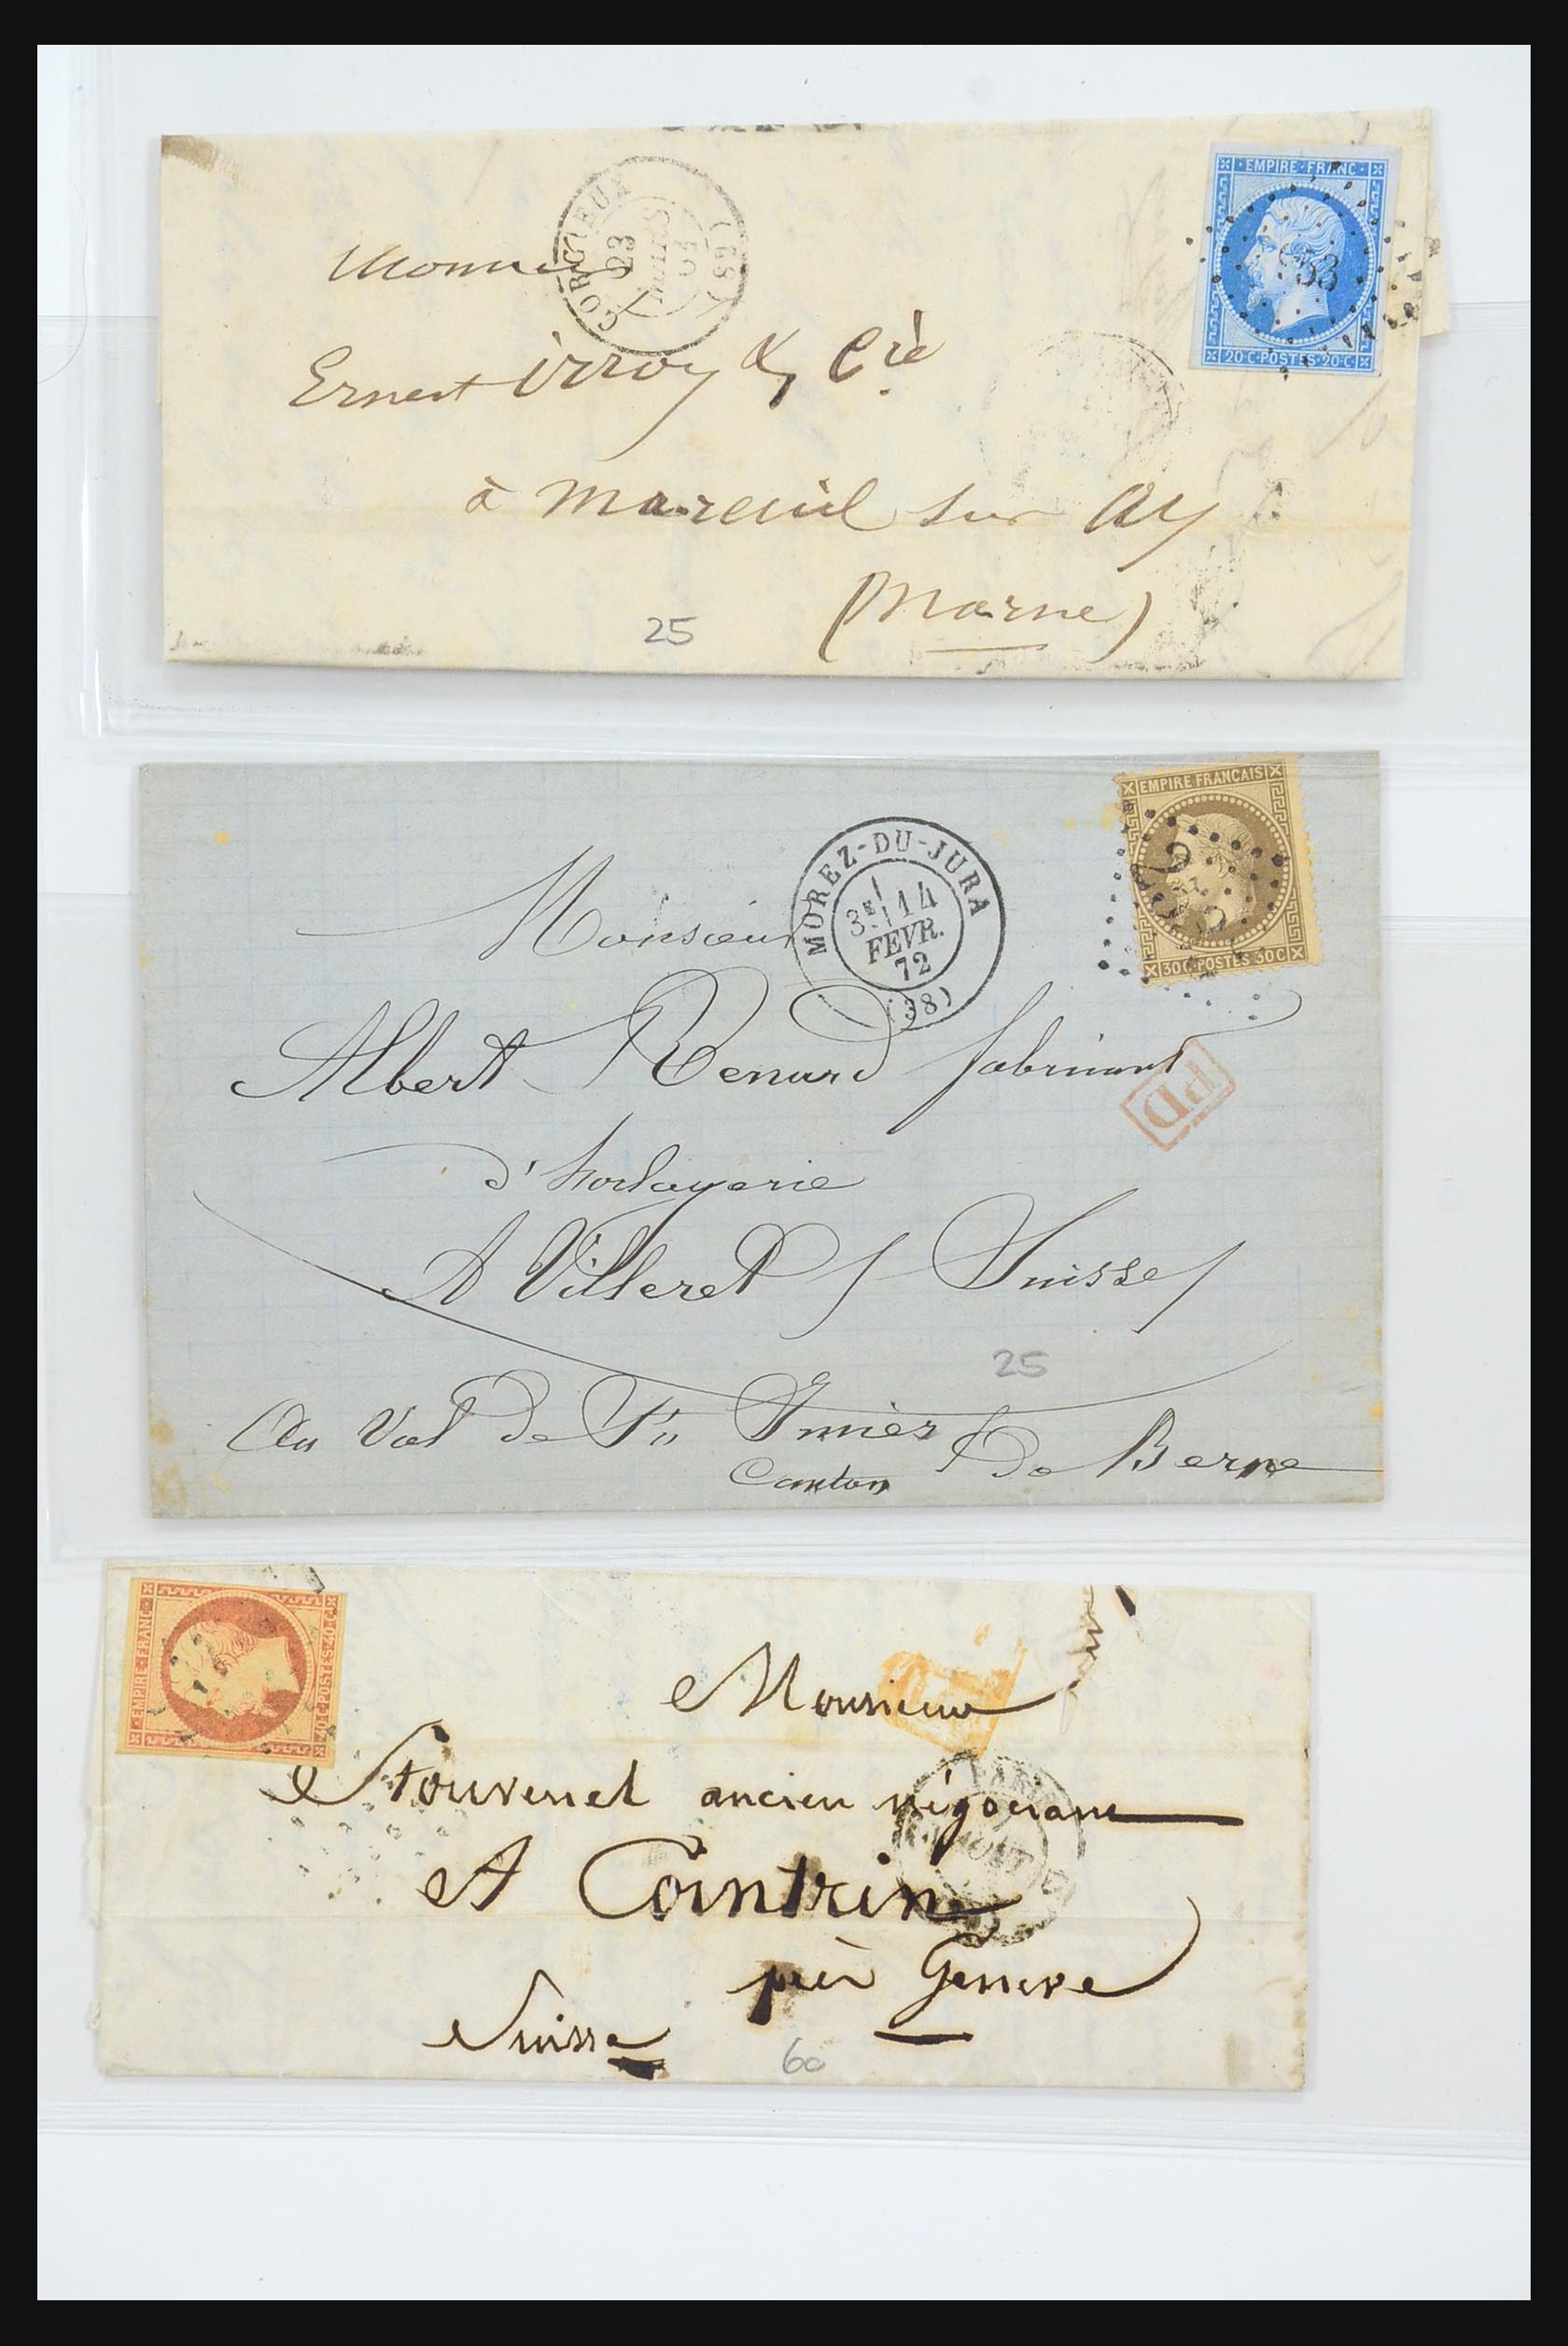 EMPIRE·FRANC·
20·C·POSTES·20·C
CORCIEUX
23
(82)
Monsieur
Ernest irroy & Cie
à Mareuil sur Ay
(Marne)
25
EMPIRE FRANCAIS
30C·POSTES 30C
MOREZ-DU-JURA
3E 14
FEVR.
72
(38)
Monsieur
Albert Renard fabricant
PD
d'horlogerie
A Villeret / Suisse /
25
Au Val de St Imier
Canton De Berne
EMPIRE·FRANC·
40·C·POSTES·40·C
Monsieur
PD
Stouvenel ancien négociant
A Cointrin
près Genève
Suisse
60